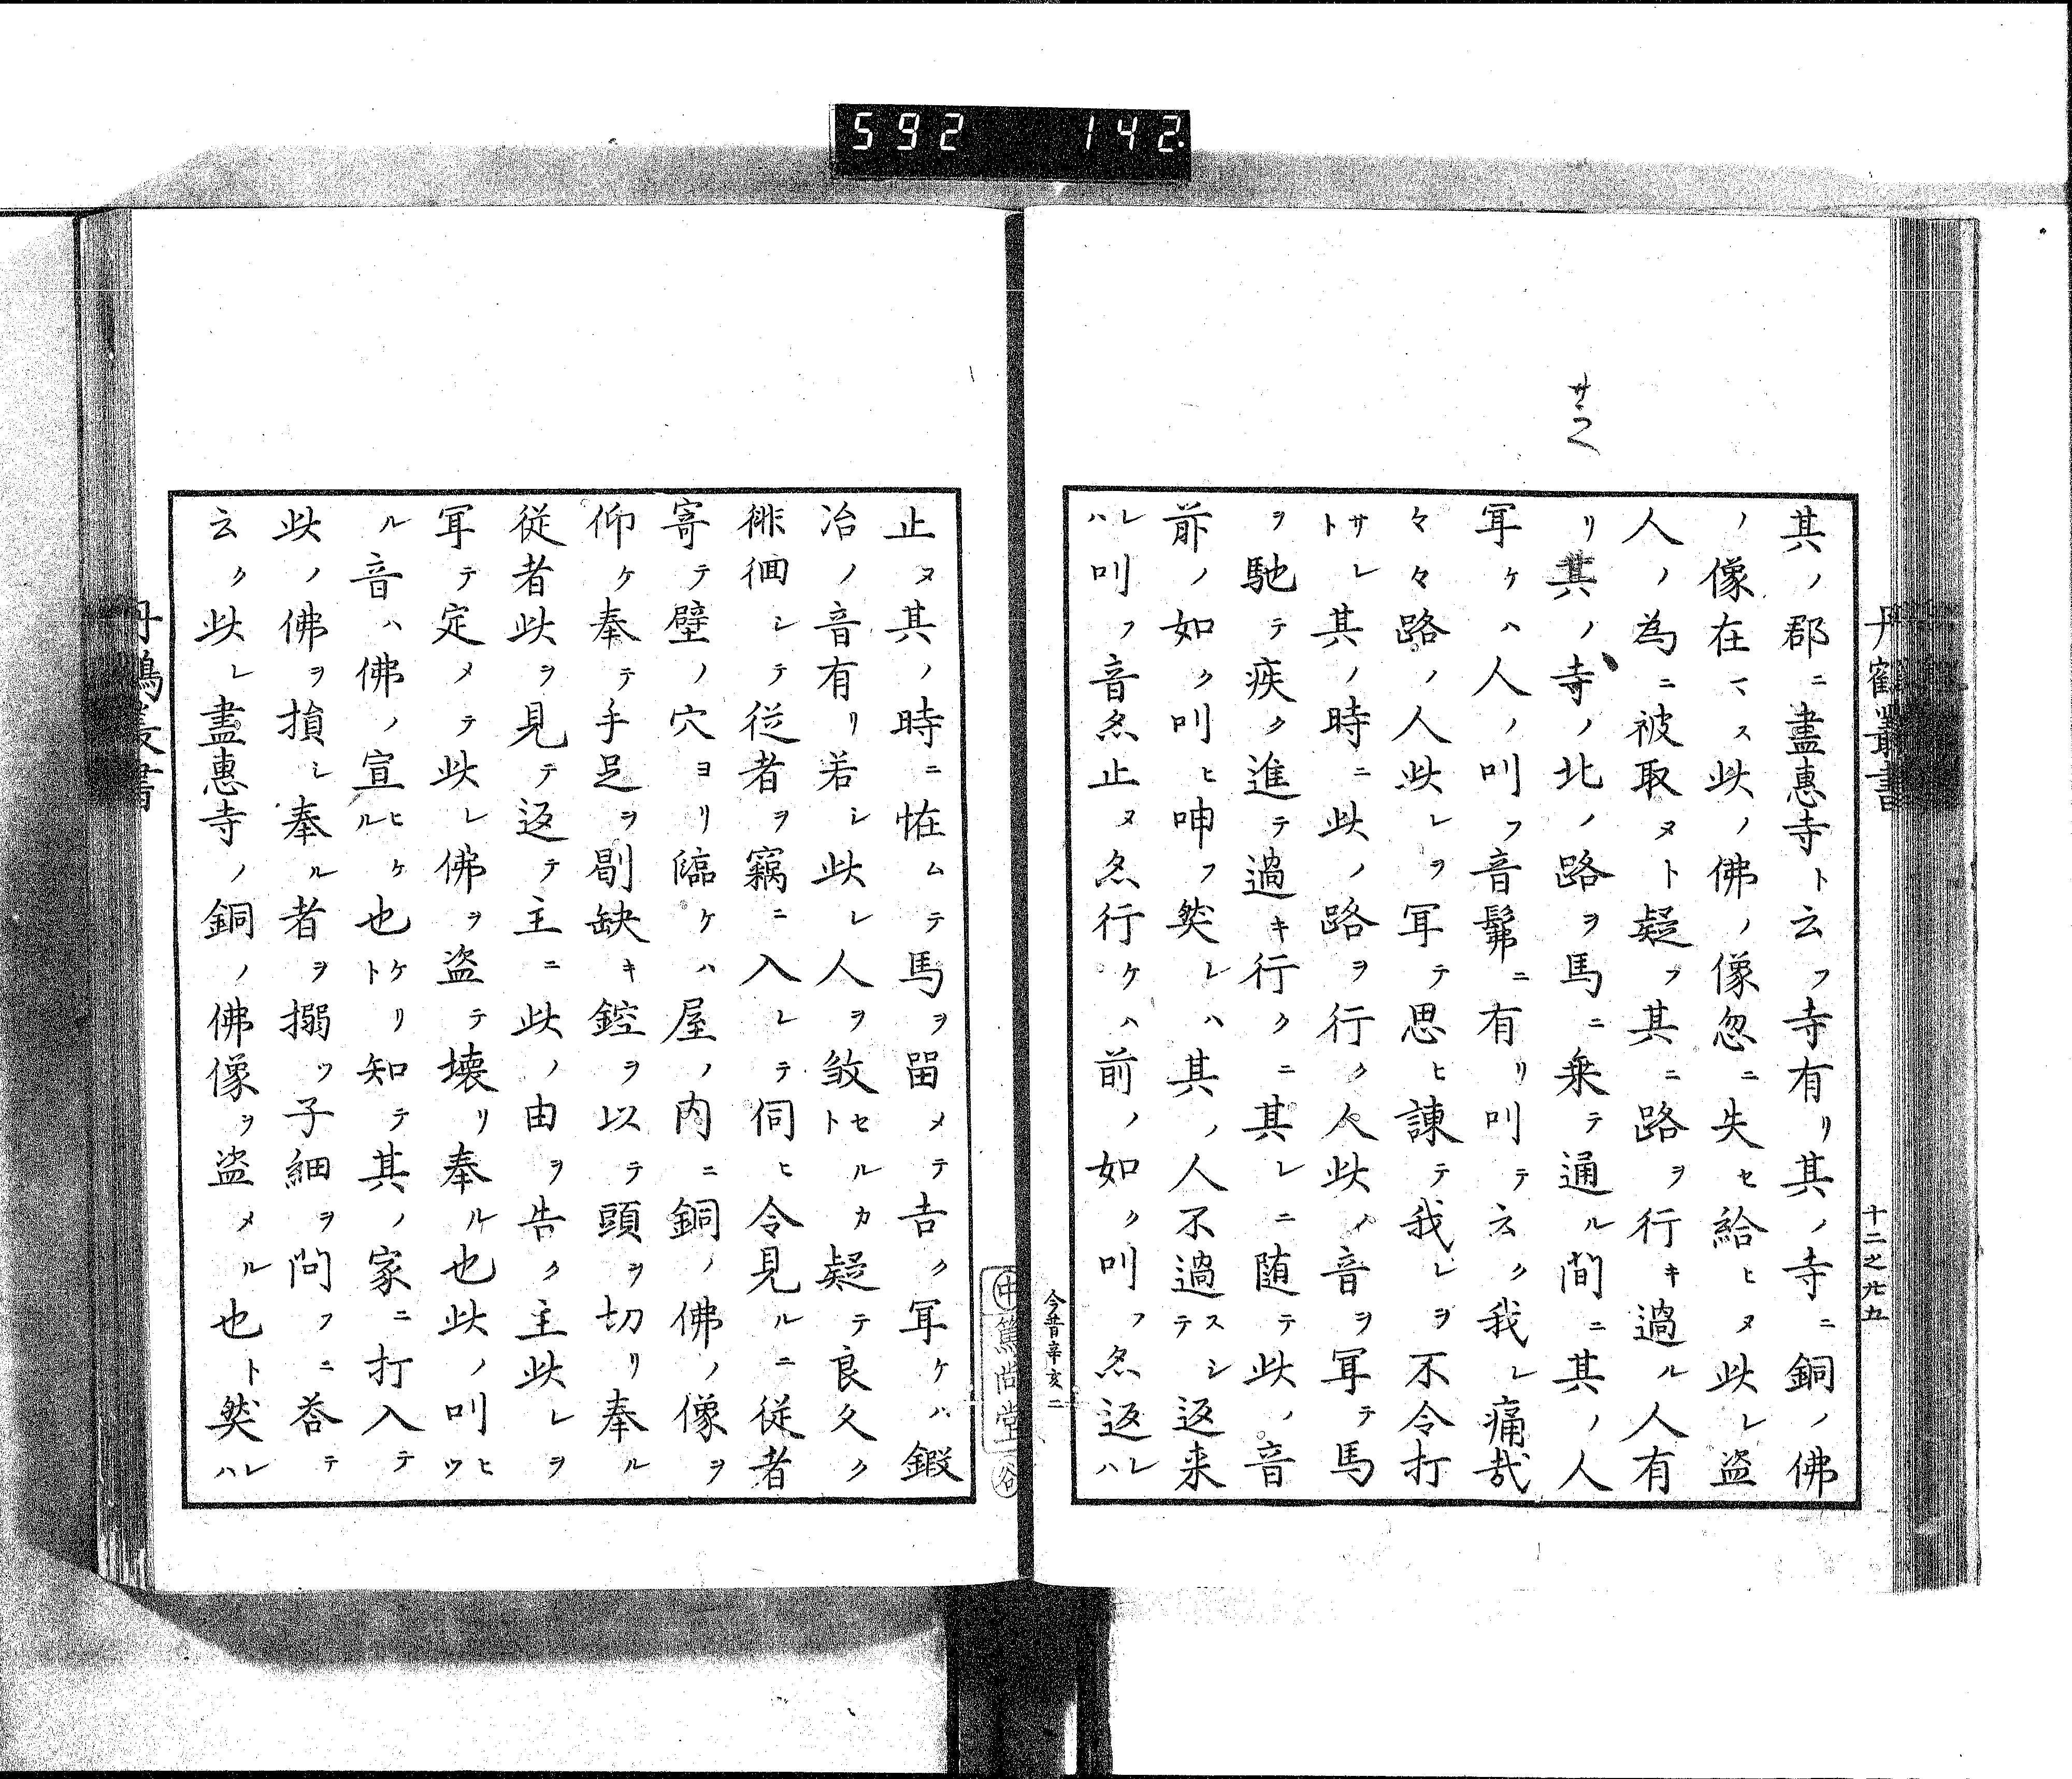 592 142
丹鶴叢書
十二之九五
其ノ郡ニ盡惠寺ト云フ寺有リ其ノ寺ニ銅ノ佛
ノ像在マス此ノ佛ノ像忽ニ失セ給ヒヌ此レ盗
人ノ為ニ被取ヌト疑フ其ニ路ヲ行キ過ル人有
リ其ノ寺ノ北ノ路ヲ馬ニ乗テ通ル間ニ其ノ人
耳ケハ人ノ叫フ音髴ニ有リ叫テ云ク我レ痛哉
々々路ノ人此レヲ耳テ思ヒ諫テ我レヲ不令打
トサレ其ノ時ニ此ノ路ヲ行ク人此ノ音ヲ耳テ馬
ヲ馳テ疾ク進テ過キ行クニ其レニ随テ此ノ音
前ノ如ク叫ヒ呻フ然レハ其ノ人不過スシテ返来
レハ叫フ音忽止ヌ忽行ケハ前ノ如ク叫フ忽返レハ
今昔辛亥二
篤尚堂
止ヌ其ノ時ニ恠ムテ馬ヲ留メテ吉ク耳ケハ鍜
冶ノ音有リ若シ此レ人ヲ敓セルカト疑テ良久ク
徘徊シテ従者ヲ竊ニ入レテ伺ヒ令見ルニ従者
寄テ壁ノ穴ヨリ臨ケハ屋ノ内ニ銅ノ佛ノ像ヲ
仰ケ奉テ手足ヲ剔缺キ錠ヲ以テ頭ヲ切リ奉ル
従者此ヲ見テ返テ主ニ此ノ由ヲ告ク主此レヲ
耳テ定メテ此レ佛ヲ盗テ壊リ奉ル也此ノ叫ヒツ
ル音ハ佛ノ宣ヒケル也ケリト知テ其ノ家ニ打入テ
此ノ佛ヲ損シ奉ル者ヲ搦ツ子細ヲ問フニ荅テ
云ク此レ盡惠寺ノ銅ノ佛像ヲ盗メル也ト然レハ